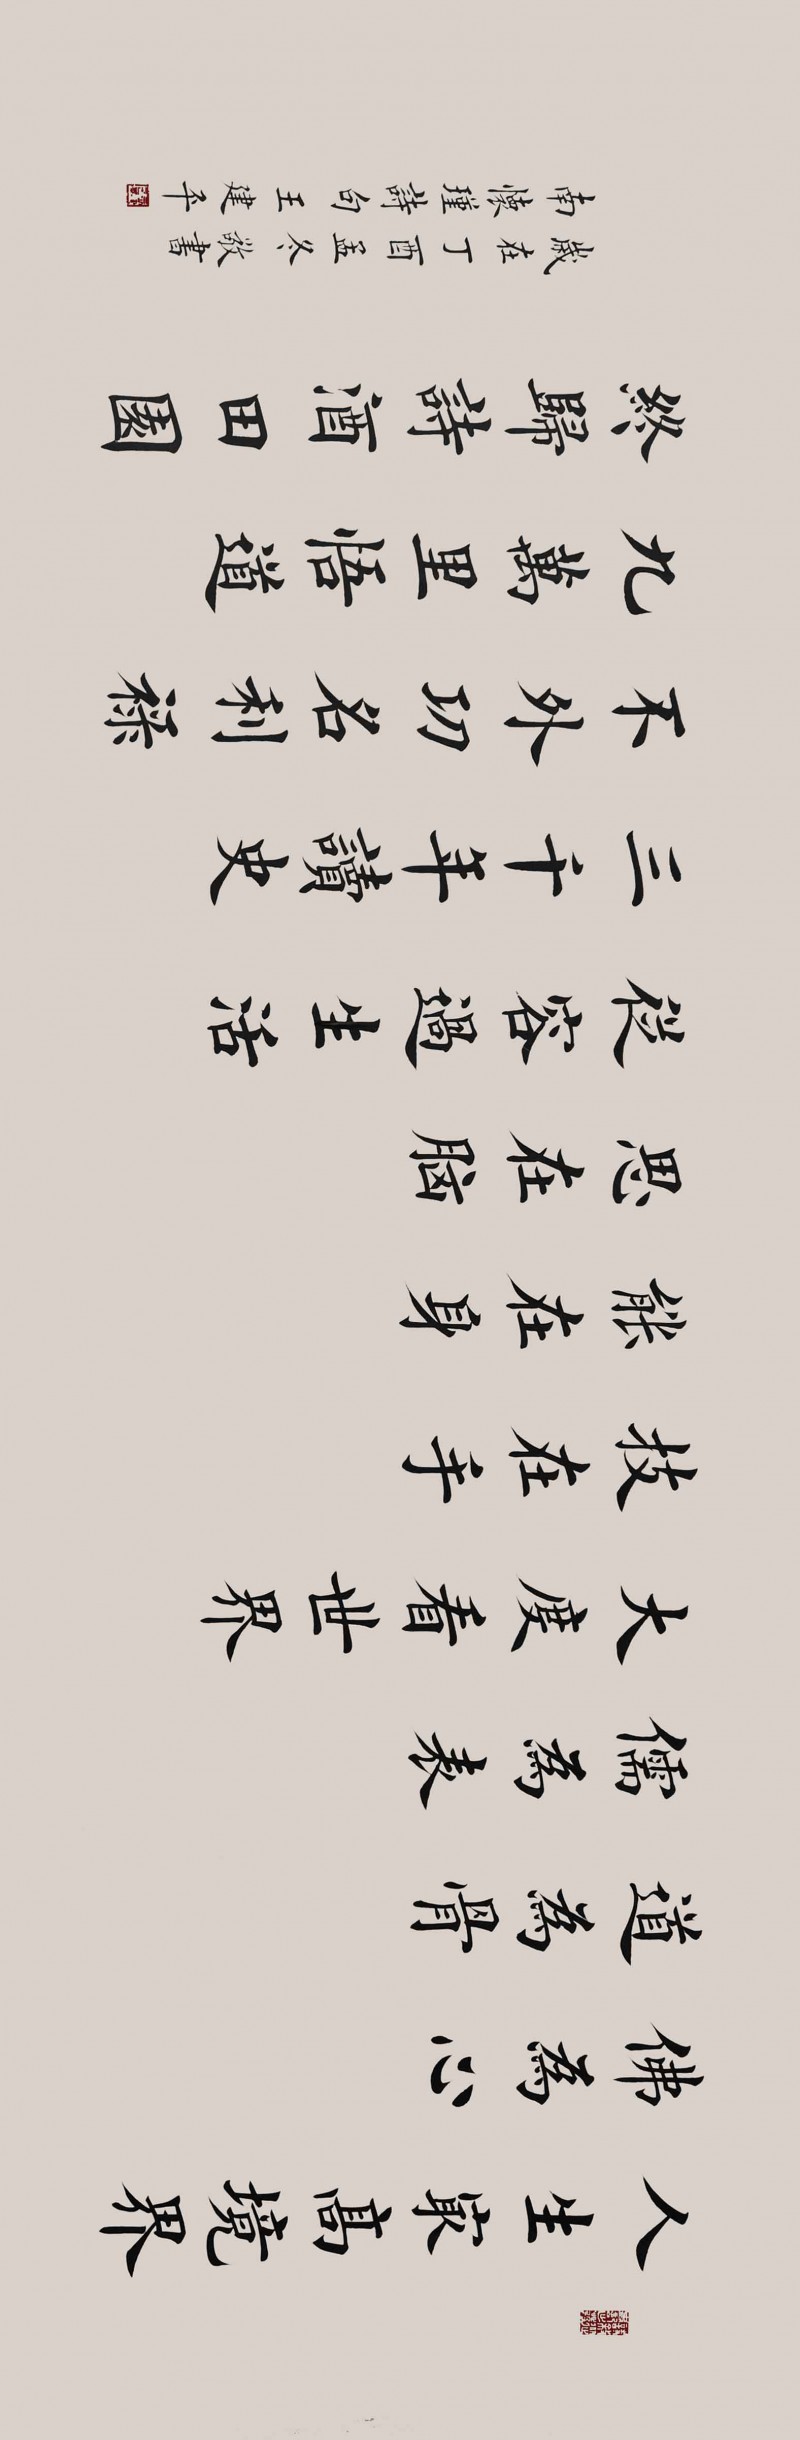 人生㝡高境界
佛為心
道為骨
儒為表
大度看世界
技在手
能在身
思在脑
從容過生活
三千年讀史
不外功名利祿
九萬里悟道
終歸詩酒田園
歲在丁酉孟冬敬書
南懷瑾詩句王建平